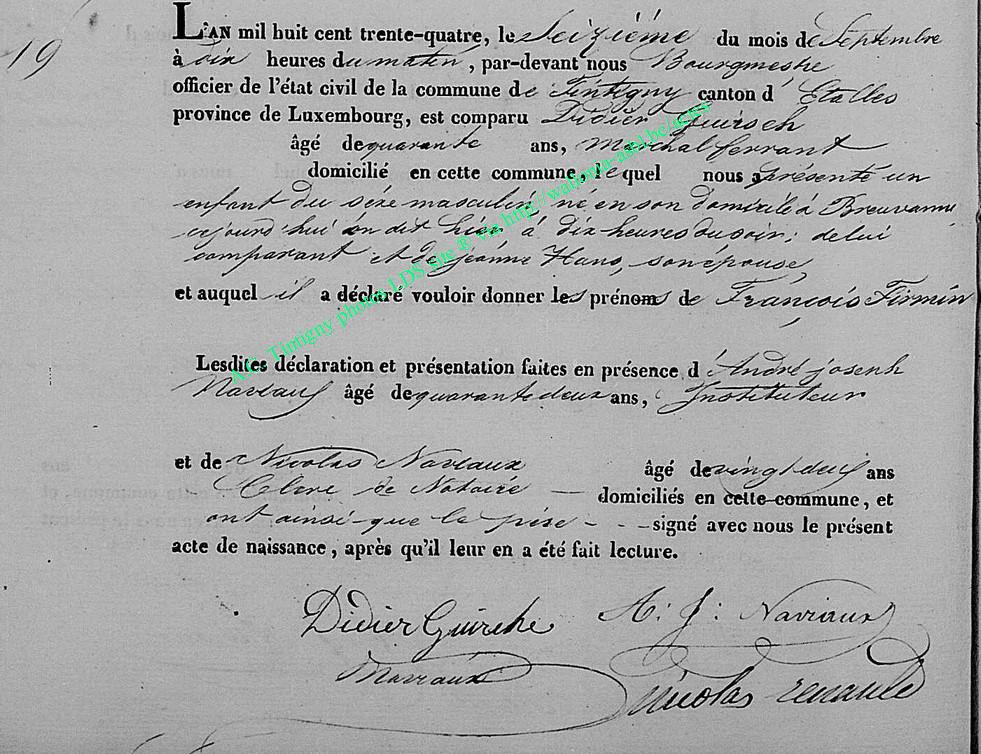 19
L'AN mil huit cent trente-quatre, le Seizième du mois de Septembre
à dix heures du matin, par-devant nous Bourgmestre
officier de l'état civil de la commune de Tintigny canton d'Etalles
province de Luxembourg, est comparu Didier Guirsch
âgé de quarante ans, Maréchal ferrant
domicilié en cette commune, lequel nous a présenté un
enfant du séxe masculin, né en son domicile à Breuvanne,
cejourd'hui à dix heures du soir; de lui
comparant et de Jeanne Hans, son épouse,
et auquel il a déclaré vouloir donner les prénoms de François Firmin
Lesdites déclaration et présentation faites en présence d'André joseph
Naviaux âgé de quarante deux ans, Instituteur
et de Nicolas Naviaux âgé de vingt deux ans
Clerc de Notaire — domiciliés en cette commune, et
ont ainsi que le père - - - signé avec nous le présent
acte de naissance, après qu'il leur en a été fait lecture.
Didier Guirche A: J: Naviaux
Naviaux Nicolas renauld
A.C. Tintigny photos LDS site ® via http://wallonia-asbl.be/actes